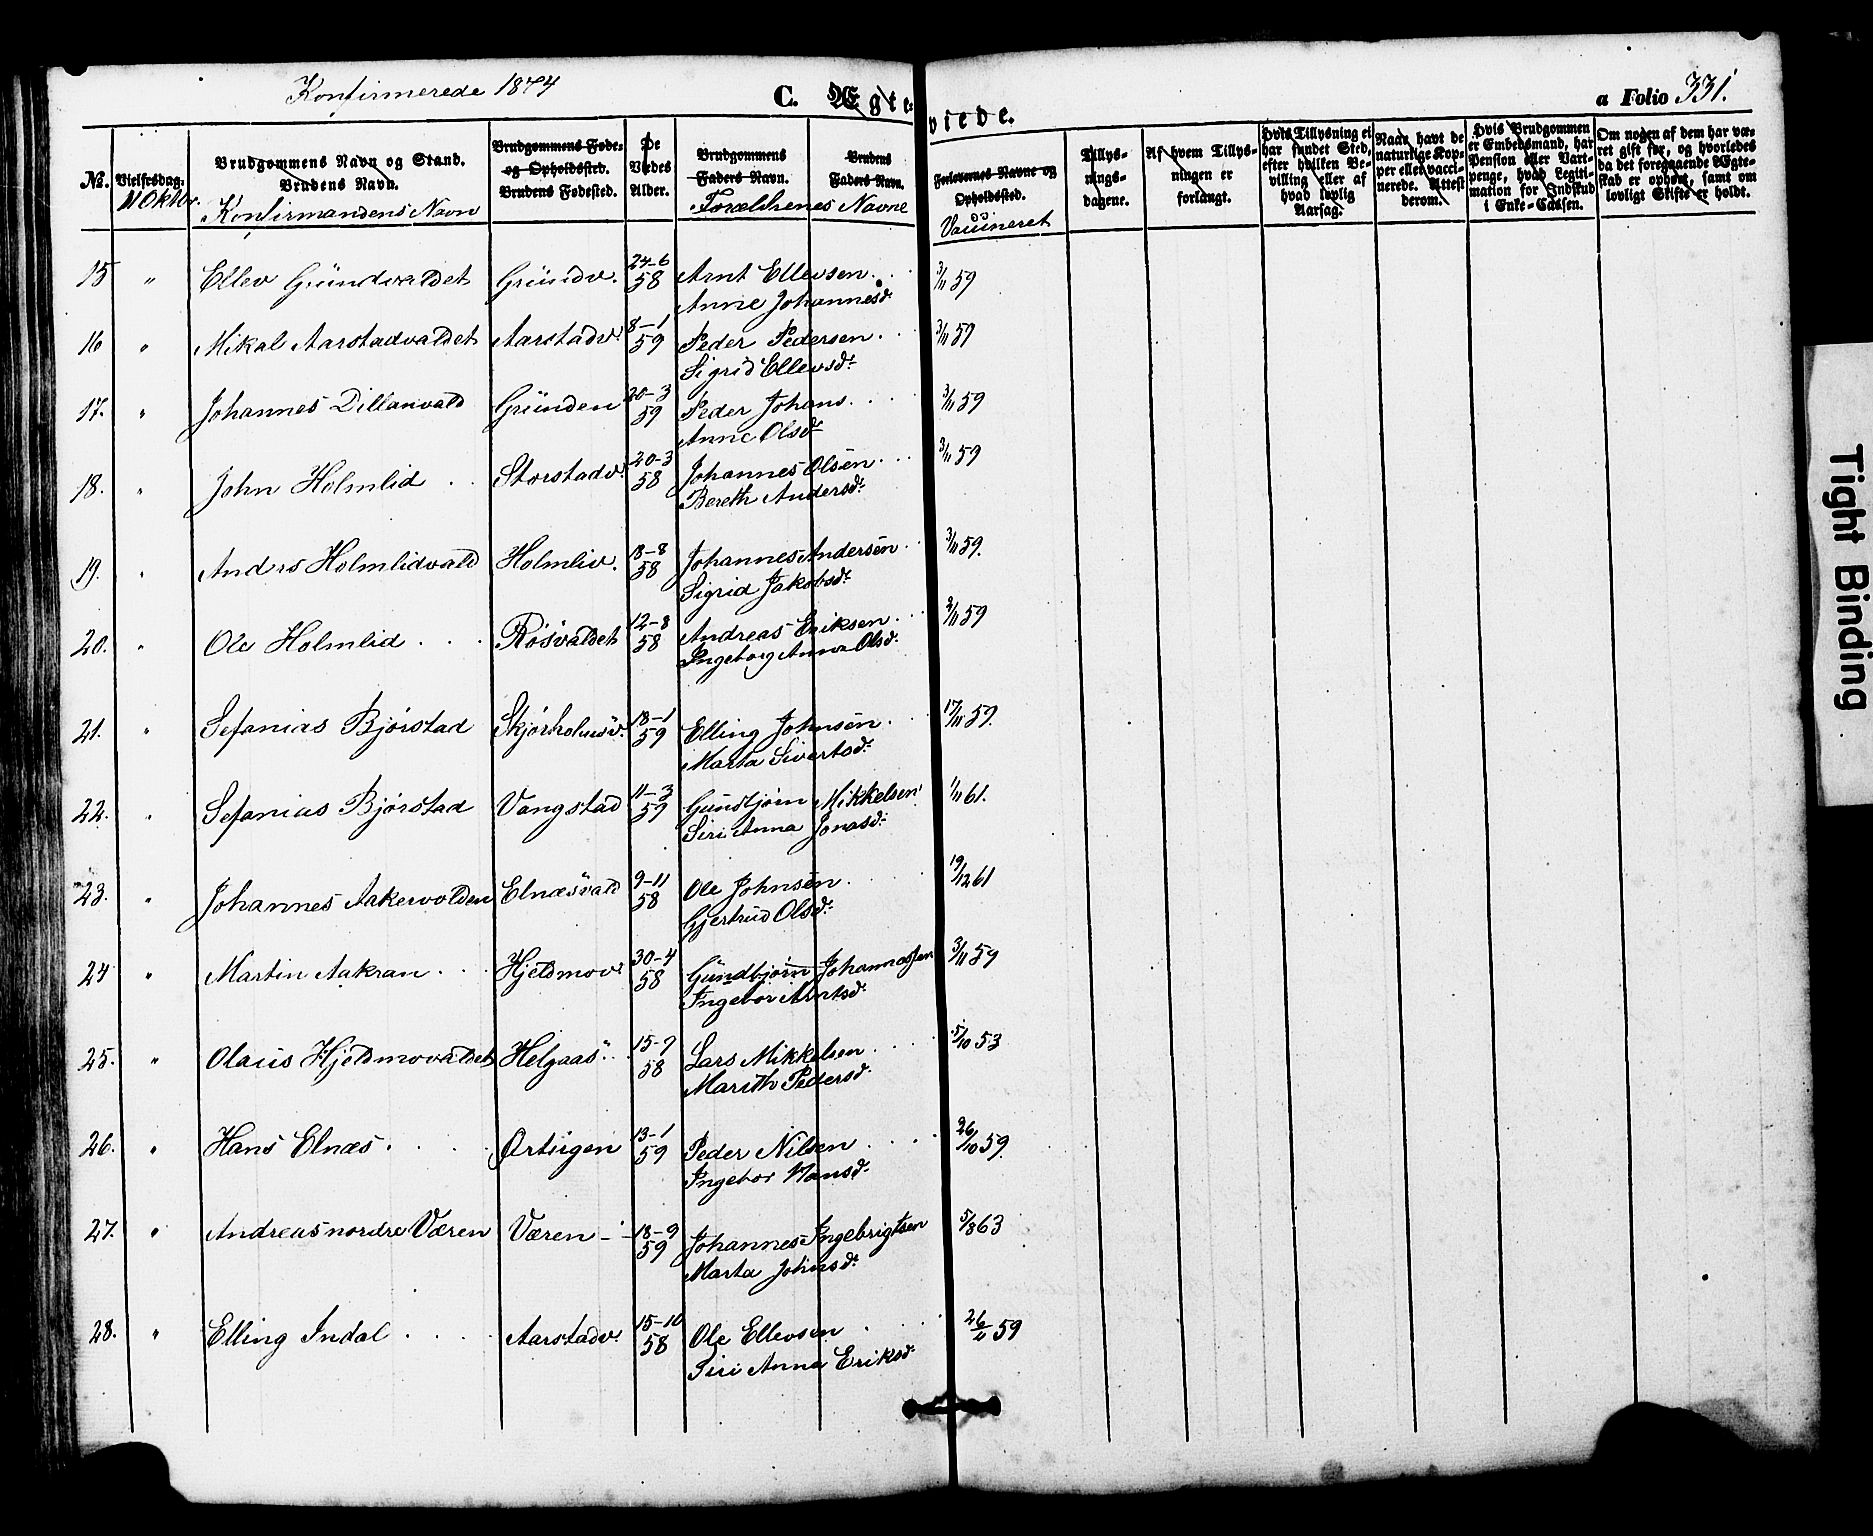 Konfirmerede 1874
C. Ægte-
viede.
a Folio 331.
No.
Vielsesdag.
11 Oktbr.
Brudgommens Navn og Stand.
Brudens Navn.
Konfirmandens Navn
Brudgommens Føde-
og Opholdssted.
Brudens Fødested.
De
Viedes
Alder.
Brudgommens
Faders Navn.
Brudens
Faders Navn.
Forældrenes Navne
Forlovernes Navne og
Opholdssted.
Vaccineret
Tillys-
nings-
dagene.
Af hvem Tillys-
ningen er
forlangt.
Hvis Tillysning ei
har fundet Sted,
efter hvilken Be-
villing eller af
hvad lovlig
Aarsag.
Naar havt de
naturlige Kop-
per eller vacci-
nerede. Attest
derom.
Hvis Brudgommen
er Embedsmand, har
Pension eller Vart-
penge, hvad Legiti-
mation for Indskud
i Enke-Cassen.
Om nogen af dem har væ-
ret gift før, og hvorledes
da det foregaaende Ægte-
skab er ophørt, samt om
lovligt Skifte er holdt.
15 " Ellev Gründvaldet Gründv. 24-6 58 Arnt Ellevsen. 3/11 59
Anne Johannesd.
16 " Mikal Aarstadvaldet Aarstadv. 8-1 59 Peder Pedersen. 3/11 59
Sigrid Ellevsd.
17. " Johannes Dillanvald Gründen 20-3 59 Peder Johans. 3/11 59
Anne Olsd.
18. " John Holmlid Storstadv. 20-3 58 Johannes Olsen. 3/11 59
Bereth Andersd.
19. " Anders Holmlidvald Holmliv. 18-8 58 Johannes Andersen. 3/11 59.
Sigrid Jakobsd.
20. " Ole Holmlid Røsvaldet 12-8 58 Andreas Eriksen. 3/11 59
Ingeborg Anna Olsd.
21. " Sefanias Bjørstad Skjørholmsv. 18-1 59 Elling Johnsen. 17/11 59.
Marta Sivertsd.
22. " Sefanias Bjørstad Vangstad 11-3 59 Gundbjørn Mikkelsen 1/11 61.
Siri Anna Jonasd.
23. " Johannes Aakervolden Elnæsvald 9-11 58 Ole Johnsen. 19/12 61
Gjertrud Olsd.
24 " Martin Aakran Hjeldmov. 30-4 58 Gundbjørn Johannessen 3/11 59
Ingebor Arntsd.
25. " Olaus Hjeldmovaldet Helgaas 15-9 58 Lars Mikkelsen 5/10 53
Marith Pedersd.
26. " Hans Elnæs Ørtugen 13-1 59 Peder Nilsen 26/10 59.
Ingebor Hansd.
27. " Andreas nordre Væren Væren 18-9 59 Johannes Ingebrigtsen 5/8 63
Marta Johnsd.
28. " Elling Indal Aarstadv. 15-10 58 Ole Ellevsen 26/11 59
Siri Anna Eriksd.
Tight Binding